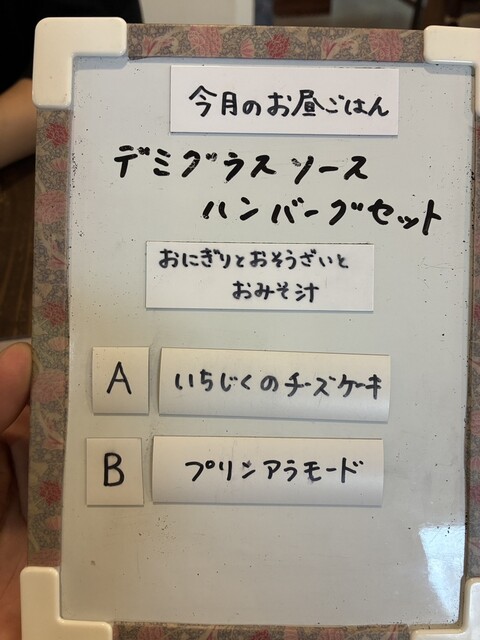 今月のお昼ごはん
デミグラスソース
ハンバーグセット
おにぎりとおそうざいと
おみそ汁
A いちじくのチーズケーキ
B プリンアラモード